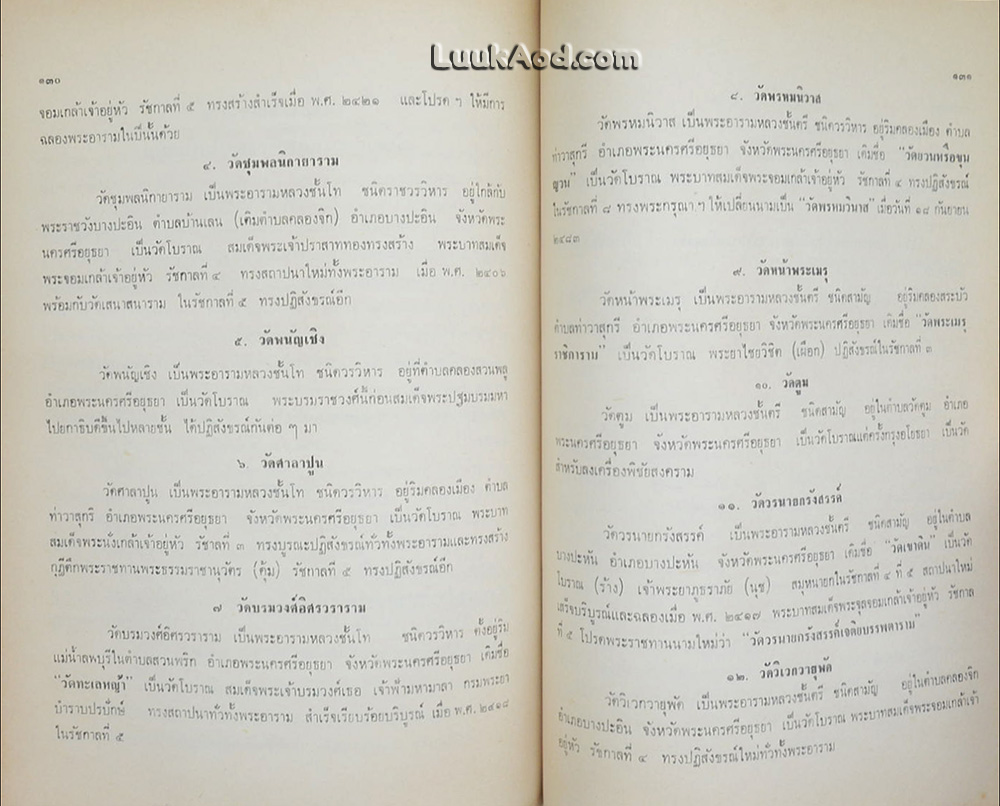 LuukAod.com
๑๓๐
จอมเกล้าเจ้าอยู่หัว รัชกาลที่ ๕ ทรงสร้างสำเร็จเมื่อ พ.ศ. ๒๔๒๑ และโปรด ฯ ให้มีการ
ฉลองพระอารามในปีนั้นด้วย
๔. วัดชุมพลนิกายาราม
วัดชุมพลนิกายาราม เป็นพระอารามหลวงชั้นโท ชนิดราชวรวิหาร อยู่ใกล้กับ
พระราชวังบางปะอิน ตำบลบ้านเลน (เดิมตำบลคลองจิก) อำเภอบางปะอิน จังหวัดพระ
นครศรีอยุธยา เป็นวัดโบราณ สมเด็จพระเจ้าปราสาททองทรงสร้าง พระบาทสมเด็จ
พระจอมเกล้าเจ้าอยู่หัว รัชกาลที่ ๔ ทรงสถาปนาใหม่ทั้งพระอาราม เมื่อ พ.ศ. ๒๔๐๖
พร้อมกับวัดเสนาสนาราม ในรัชกาลที่ ๕ ทรงปฏิสังขรณ์อีก
๕. วัดพนัญเชิง
วัดพนัญเชิง เป็นพระอารามหลวงชั้นโท ชนิดวรวิหาร อยู่ที่ตำบลคลองสวนพลู
อำเภอพระนครศรีอยุธยา เป็นวัดโบราณ พระบรมราชวงศ์นี้ก่อนสมเด็จพระปฐมบรมมหา
ไปยกาธิบดีขึ้นไปหลายชั้น ได้ปฏิสังขรณ์กันต่อ ๆ มา
๖. วัดศาลาปูน
วัดศาลาปูน เป็นพระอารามหลวงชั้นโท ชนิดวรวิหาร อยู่ริมคลองเมือง ตำบล
ท่าวาสุกรี อำเภอพระนครศรีอยุธยา จังหวัดพระนครศรีอยุธยา เป็นวัดโบราณ พระบาท
สมเด็จพระนั่งเกล้าเจ้าอยู่หัว รัชาลที่ ๓ ทรงบูรณะปฏิสังขรณ์ทั่วทั้งพระอารามและทรงสร้าง
กุฏิตึกพระราชทานพระธรรมราชานุวัตร (คุ้ม) รัชกาลที่ ๕ ทรงปฏิสังขรณ์อีก
๗ วัดบรมวงศ์อิศรวราราม
วัดบรมวงศ์อิศรวราราม เป็นพระอารามหลวงชั้นโท ชนิดวรวิหาร ตั้งอยู่ริม
แม่น้ำลพบุรีในตำบลสวนพริก อำเภอพระนครศรีอยุธยา จังหวัดพระนครศรีอยุธยา เดิมชื่อ
"วัดทะเลหญ้า" เป็นวัดโบราณ สมเด็จพระเจ้าบรมวงศ์เธอ เจ้าฟ้ามหามาลา กรมพระยา
บำราบปรปักษ์ ทรงสถาปนาทั่วทั้งพระอาราม สำเร็จเรียบร้อยบริบูรณ์ เมื่อ พ.ศ. ๒๔๑๘
ในรัชกาลที่ ๕
๑๓๑
๘. วัดพรหมนิวาส
วัดพรหมนิวาส เป็นพระอารามหลวงชั้นตรี ชนิดวรวิหาร อยู่ริมคลองเมือง ตำบล
ท่าวาสุกรี อำเภอพระนครศรีอยุธยา จังหวัดพระนครศรีอยุธยา เดิมชื่อ "วัดยวนหรือขุน
ญวน" เป็นวัดโบราณ พระบาทสมเด็จพระจอมเกล้าเจ้าอยู่หัว รัชกาลที่ ๔ ทรงปฏิสังขรณ์
ในรัชกาลที่ ๘ ทรงพระกรุณา ฯ ให้เปลี่ยนนามเป็น "วัดพรหมนิวาส" เมื่อวันที่ ๑๘ กันยายน
๒๔๘๓
๙. วัดหน้าพระเมรุ
วัดหน้าพระเมรุ เป็นพระอารามหลวงชั้นตรี ชนิดสามัญ อยู่ริมคลองสระบัว
ตำบลท่าวาสุกรี อำเภอพระนครศรีอยุธยา จังหวัดพระนครศรีอยุธยา เดิมชื่อ "วัดพระเมรุ
ราชิการาม" เป็นวัดโบราณ พระยาไชยวิชิต (เผือก) ปฏิสังขรณ์ในรัชกาลที่ ๓
๑๐. วัดตูม
วัดตูม เป็นพระอารามหลวงชั้นตรี ชนิดสามัญ อยู่ในตำบลวัดตูม อำเภอ
พระนครศรีอยุธยา จังหวัดพระนครศรีอยุธยา เป็นวัดโบราณแต่ครั้งกรุงอโยธยา เป็นวัด
สำหรับลงเครื่องพิชัยสงคราม
๑๑. วัดวรนายกรังสรรค์
วัดวรนายกรังสรรค์ เป็นพระอารามหลวงชั้นตรี ชนิดสามัญ อยู่ในตำบล
บางปะหัน อำเภอบางปะหัน จังหวัดพระนครศรีอยุธยา เดิมชื่อ "วัดเขาดิน" เป็นวัด
โบราณ (ร้าง) เจ้าพระยาภูธราภัย (นุช) สมุหนายกในรัชกาลที่ ๔ ที่ ๕ สถาปนาใหม่
เสร็จบริบูรณ์และฉลองเมื่อ พ.ศ. ๒๔๑๗ พระบาทสมเด็จพระจุลจอมเกล้าเจ้าอยู่หัว รัชกาล
ที่ ๕ โปรดพระราชทานนามใหม่ว่า "วัดวรนายกรังสรรค์เจติยบรรพตาราม"
๑๒. วัดวิเวกวายุพัด
วัดวิเวกวายุพัด เป็นพระอารามหลวงชั้นตรี ชนิดสามัญ อยู่ในตำบลคลองจิก
อำเภอบางปะอิน จังหวัดพระนครศรีอยุธยา เป็นวัดโบราณ พระบาทสมเด็จพระจอมเกล้าเจ้า
อยู่หัว รัชกาลที่ ๔ ทรงปฏิสังขรณ์ใหม่ทั่วทั้งพระอาราม